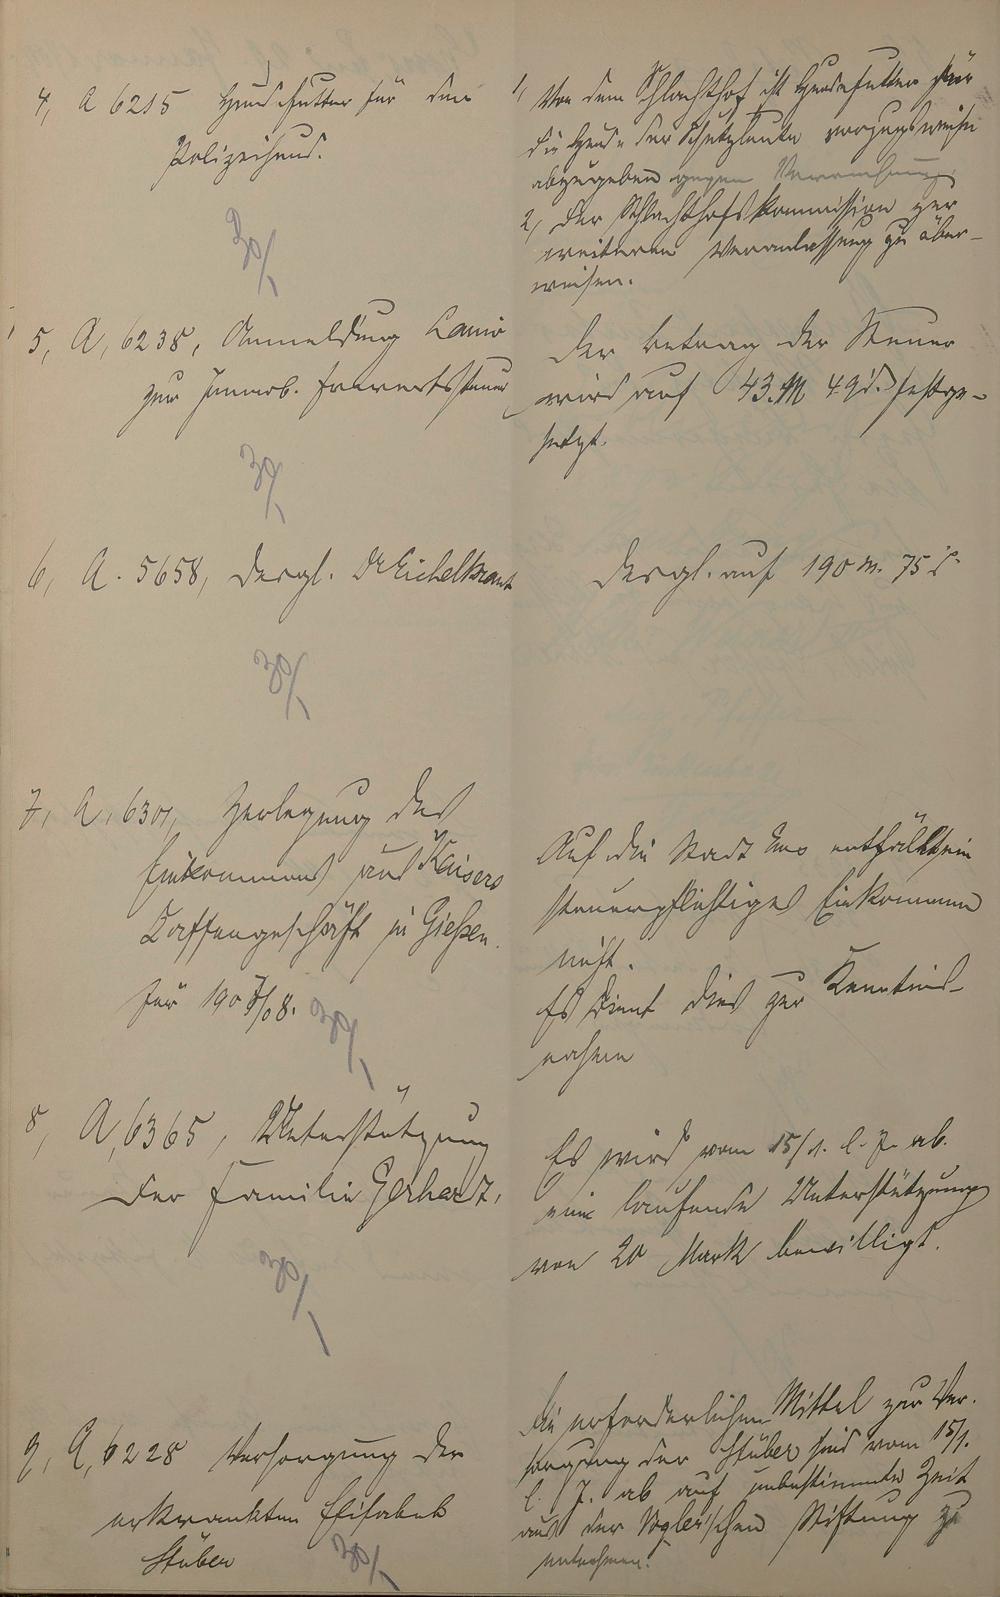 4, A 6215 Hundefutter für den
Polizeihund.
30/1
1, Von dem Schlachthof ist Hundefutter für
die Hunde der Schutzleute vorzugsweise
abzugeben gegen Verrechnung.
2, Der Schlachthofskommission zur
weiteren Veranlassung zu über-
weisen.
5, A, 6238, Anmeldung
zur Immob.
30/1
Der Betrag der Steuer
wird auf 43. M 49 d. festge-
setzt.
6, A. 5658, Desgl. Dr
30/1
Desgl. auf 190 M. 75 d.
7, A, 6301, Zerlegung des
Einkommens aus Kaisers
Kaffeegeschäft in Gießen
für 1907/08.
30/1
Auf die Stadt Ems entfällt ein
steuerpflichtiges Einkommen
nicht.
Es dient dies zur Kenntnis-
nahme
8, A, 6365, Unterstützung
der Familie Gerhardt.
30/1
Es wird vom 15/1. l. J. ab.
eine laufende Unterstützung
von 20 Mark bewilligt.
9, A, 6228 Versorgung der
erkrankten Elisabeth
Stüber
30/1
Die erforderlichen Mittel zur Ver-
sorgung der Stüber sind vom 15/1.
l. J. ab auf unbestimmte Zeit
aus der Vogler'schen Stiftung zu
entnehmen.